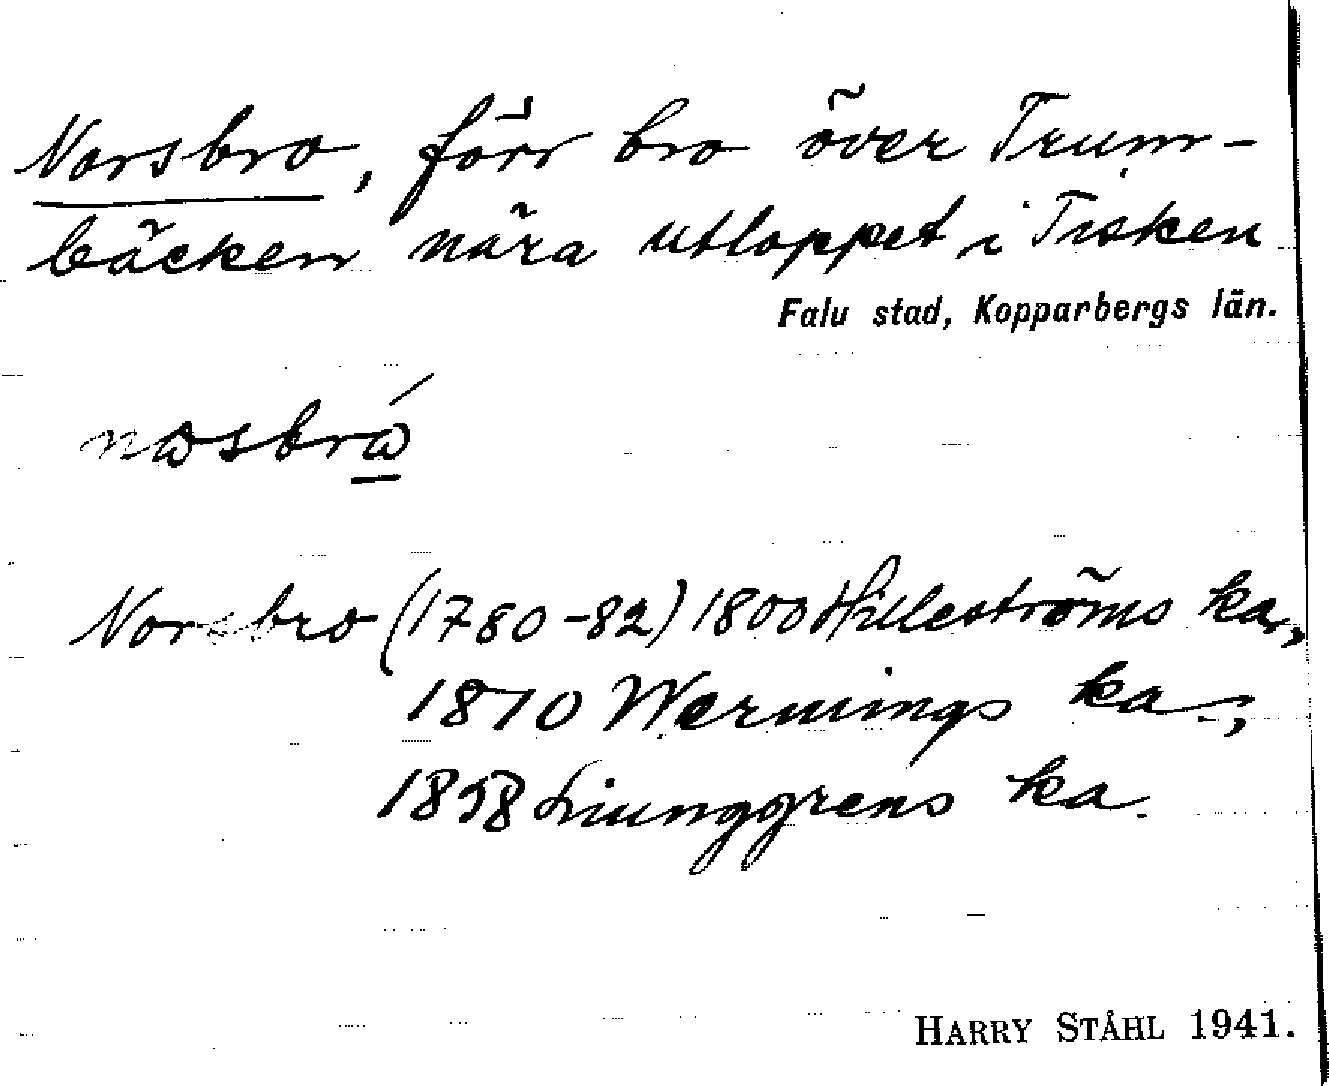 Norsbro, förr bro över Trum-
bäcken nära utloppet i Tisken
Falu stad, Kopparbergs län.
Norsbro (1780-82) 1800 Hilleströms ka.,
1810 Wernings ka.,
1858 Liunggrens ka.
HARRY STÅHL 1941.